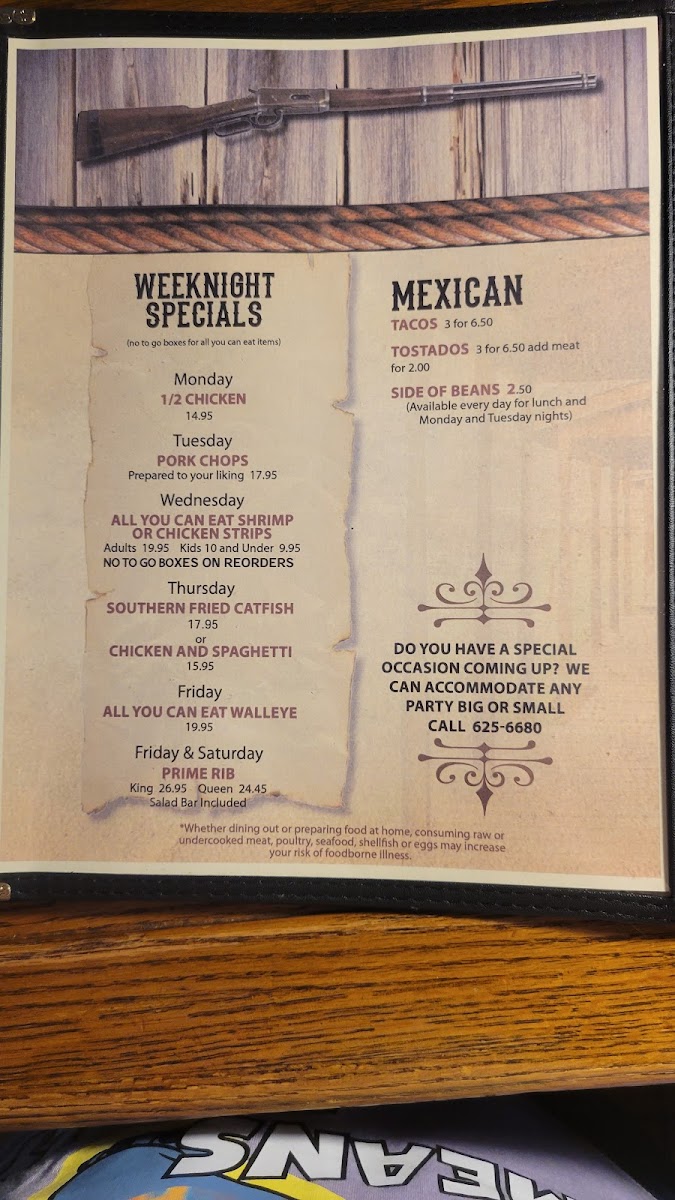 WEEKNIGHT
SPECIALS
(no to go boxes for all you can eat items)
Monday
1/2 CHICKEN
14.95
Tuesday
PORK CHOPS
Prepared to your liking 17.95
Wednesday
ALL YOU CAN EAT SHRIMP
OR CHICKEN STRIPS
Adults 19.95 Kids 10 and Under 9.95
NO TO GO BOXES ON REORDERS
Thursday
SOUTHERN FRIED CATFISH
17.95
or
CHICKEN AND SPAGHETTI
15.95
Friday
ALL YOU CAN EAT WALLEYE
19.95
Friday & Saturday
PRIME RIB
King 26.95 Queen 24.45
Salad Bar Included
MEXICAN
TACOS 3 for 6.50
TOSTADOS 3 for 6.50 add meat
for 2.00
SIDE OF BEANS 2.50
(Available every day for lunch and
Monday and Tuesday nights)
DO YOU HAVE A SPECIAL
OCCASION COMING UP? WE
CAN ACCOMMODATE ANY
PARTY BIG OR SMALL
CALL 625-6680
*Whether dining out or preparing food at home, consuming raw or
undercooked meat, poultry, seafood, shellfish or eggs may increase
your risk of foodborne illness.
MEANS